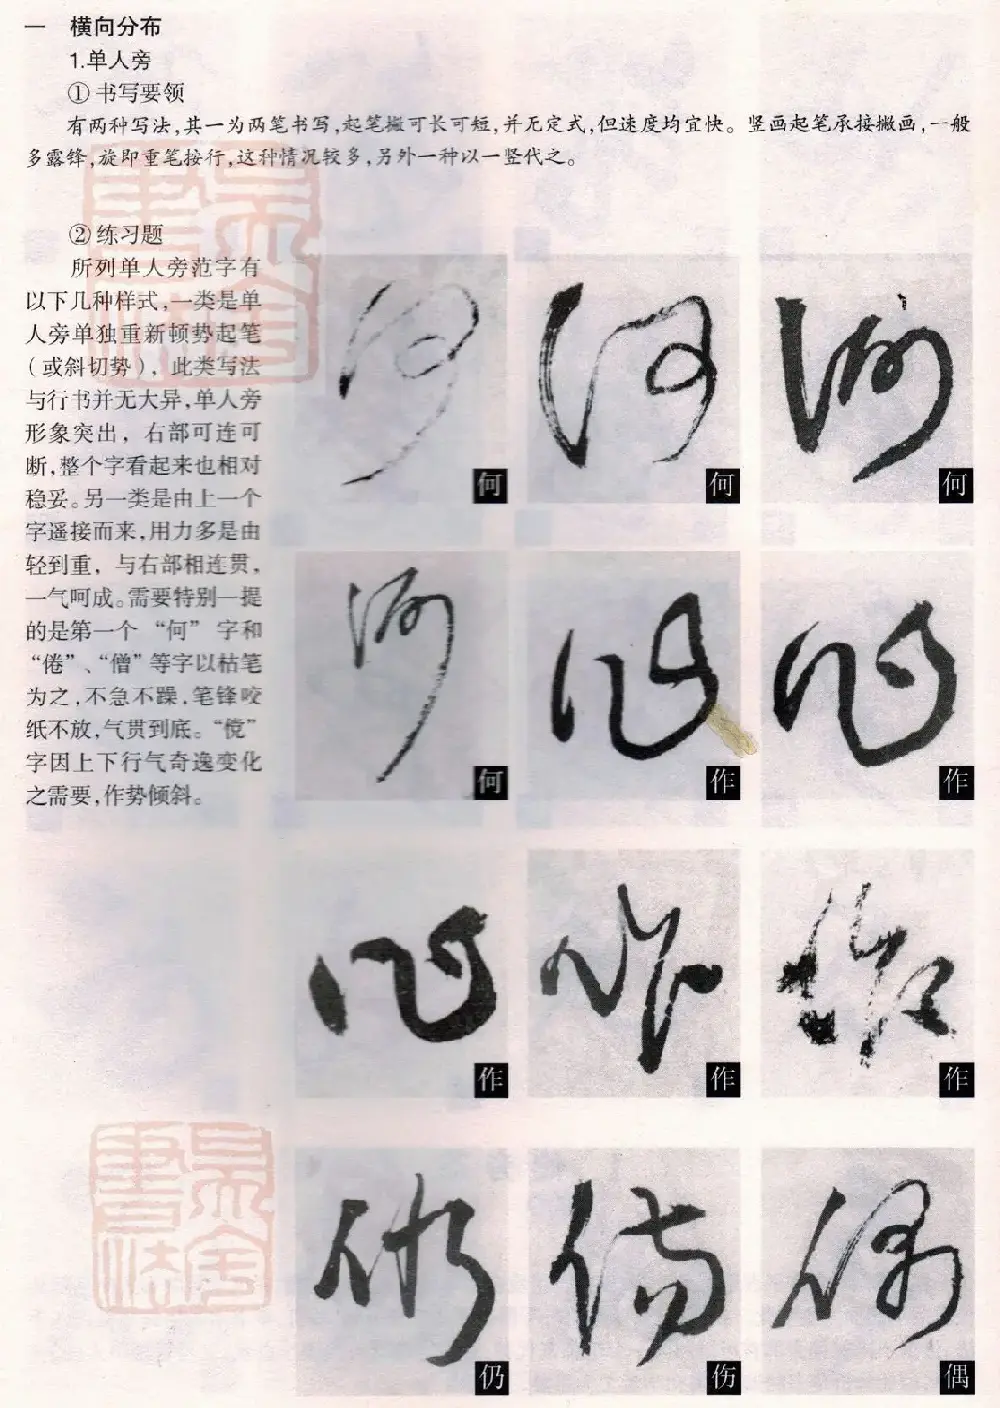 一 横向分布
1.单人旁
① 书写要领
有两种写法,其一为两笔书写,起笔撇可长可短,并无定式,但速度均宜快。竖画起笔承接撇画,一般
多露锋,旋即重笔按行,这种情况较多,另外一种以一竖代之。
② 练习题
所列单人旁范字有
以下几种样式,一类是单
人旁单独重新顿势起笔
(或斜切势),此类写法
与行书并无大异,单人旁
形象突出,右部可连可
断,整个字看起来也相对
稳妥。另一类是由上一个
字遥接而来,用力多是由
轻到重,与右部相连贯,
一气呵成。需要特别一提
的是第一个“何”字和
“倦”、“僧”等字以枯笔
为之,不急不躁,笔锋咬
纸不放,气贯到底。“傥”
字因上下行气奇逸变化
之需要,作势倾斜。
何 何 何
何 作 作
作 作 作
仍 伤 偶